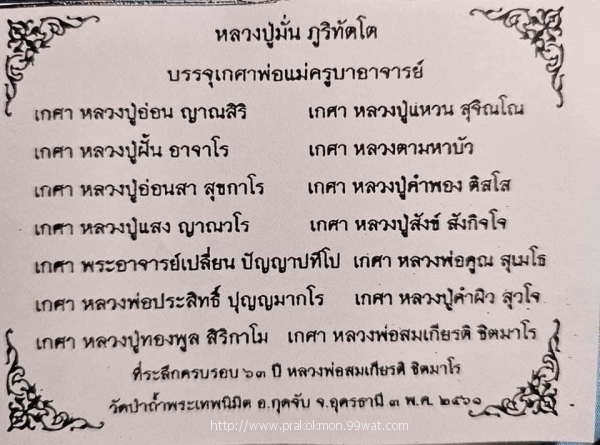 หลวงปู่มั่น ภูริทัตโต
บรรจุเกศาพ่อแม่ครูบาอาจารย์
เกศา หลวงปู่อ่อน ญาณสิริ เกศา หลวงปู่แหวน สุจิณโณ
เกศา หลวงปู่ฝั้น อาจาโร เกศา หลวงตามหาบัว
เกศา หลวงปู่อ่อนสา สุขกาโร เกศา หลวงปู่คำพอง ติสโส
เกศา หลวงปู่แสง ญาณวโร เกศา หลวงปู่สังข์ สังกิจโจ
เกศา พระอาจารย์เปลี่ยน ปัญญาปทีโป เกศา หลวงพ่อคูณ สุเมโธ
เกศา หลวงพ่อประสิทธิ์ ปุญญมากโร เกศา หลวงปู่คำผิว สุวโจ
เกศา หลวงปู่ทองพูล สิริกาโม เกศา หลวงพ่อสมเกียรติ ชิตมาโร
ที่ระลึกครบรอบ ๖๓ ปี หลวงพ่อสมเกียรติ ชิตมาโร
วัดป่าถ้ำพระเทพนิมิต อ.กุดจับ จ.อุดรธานี ๓ พ.ค. ๒๕๖๑
http://www.prakokmon.99wat.com/